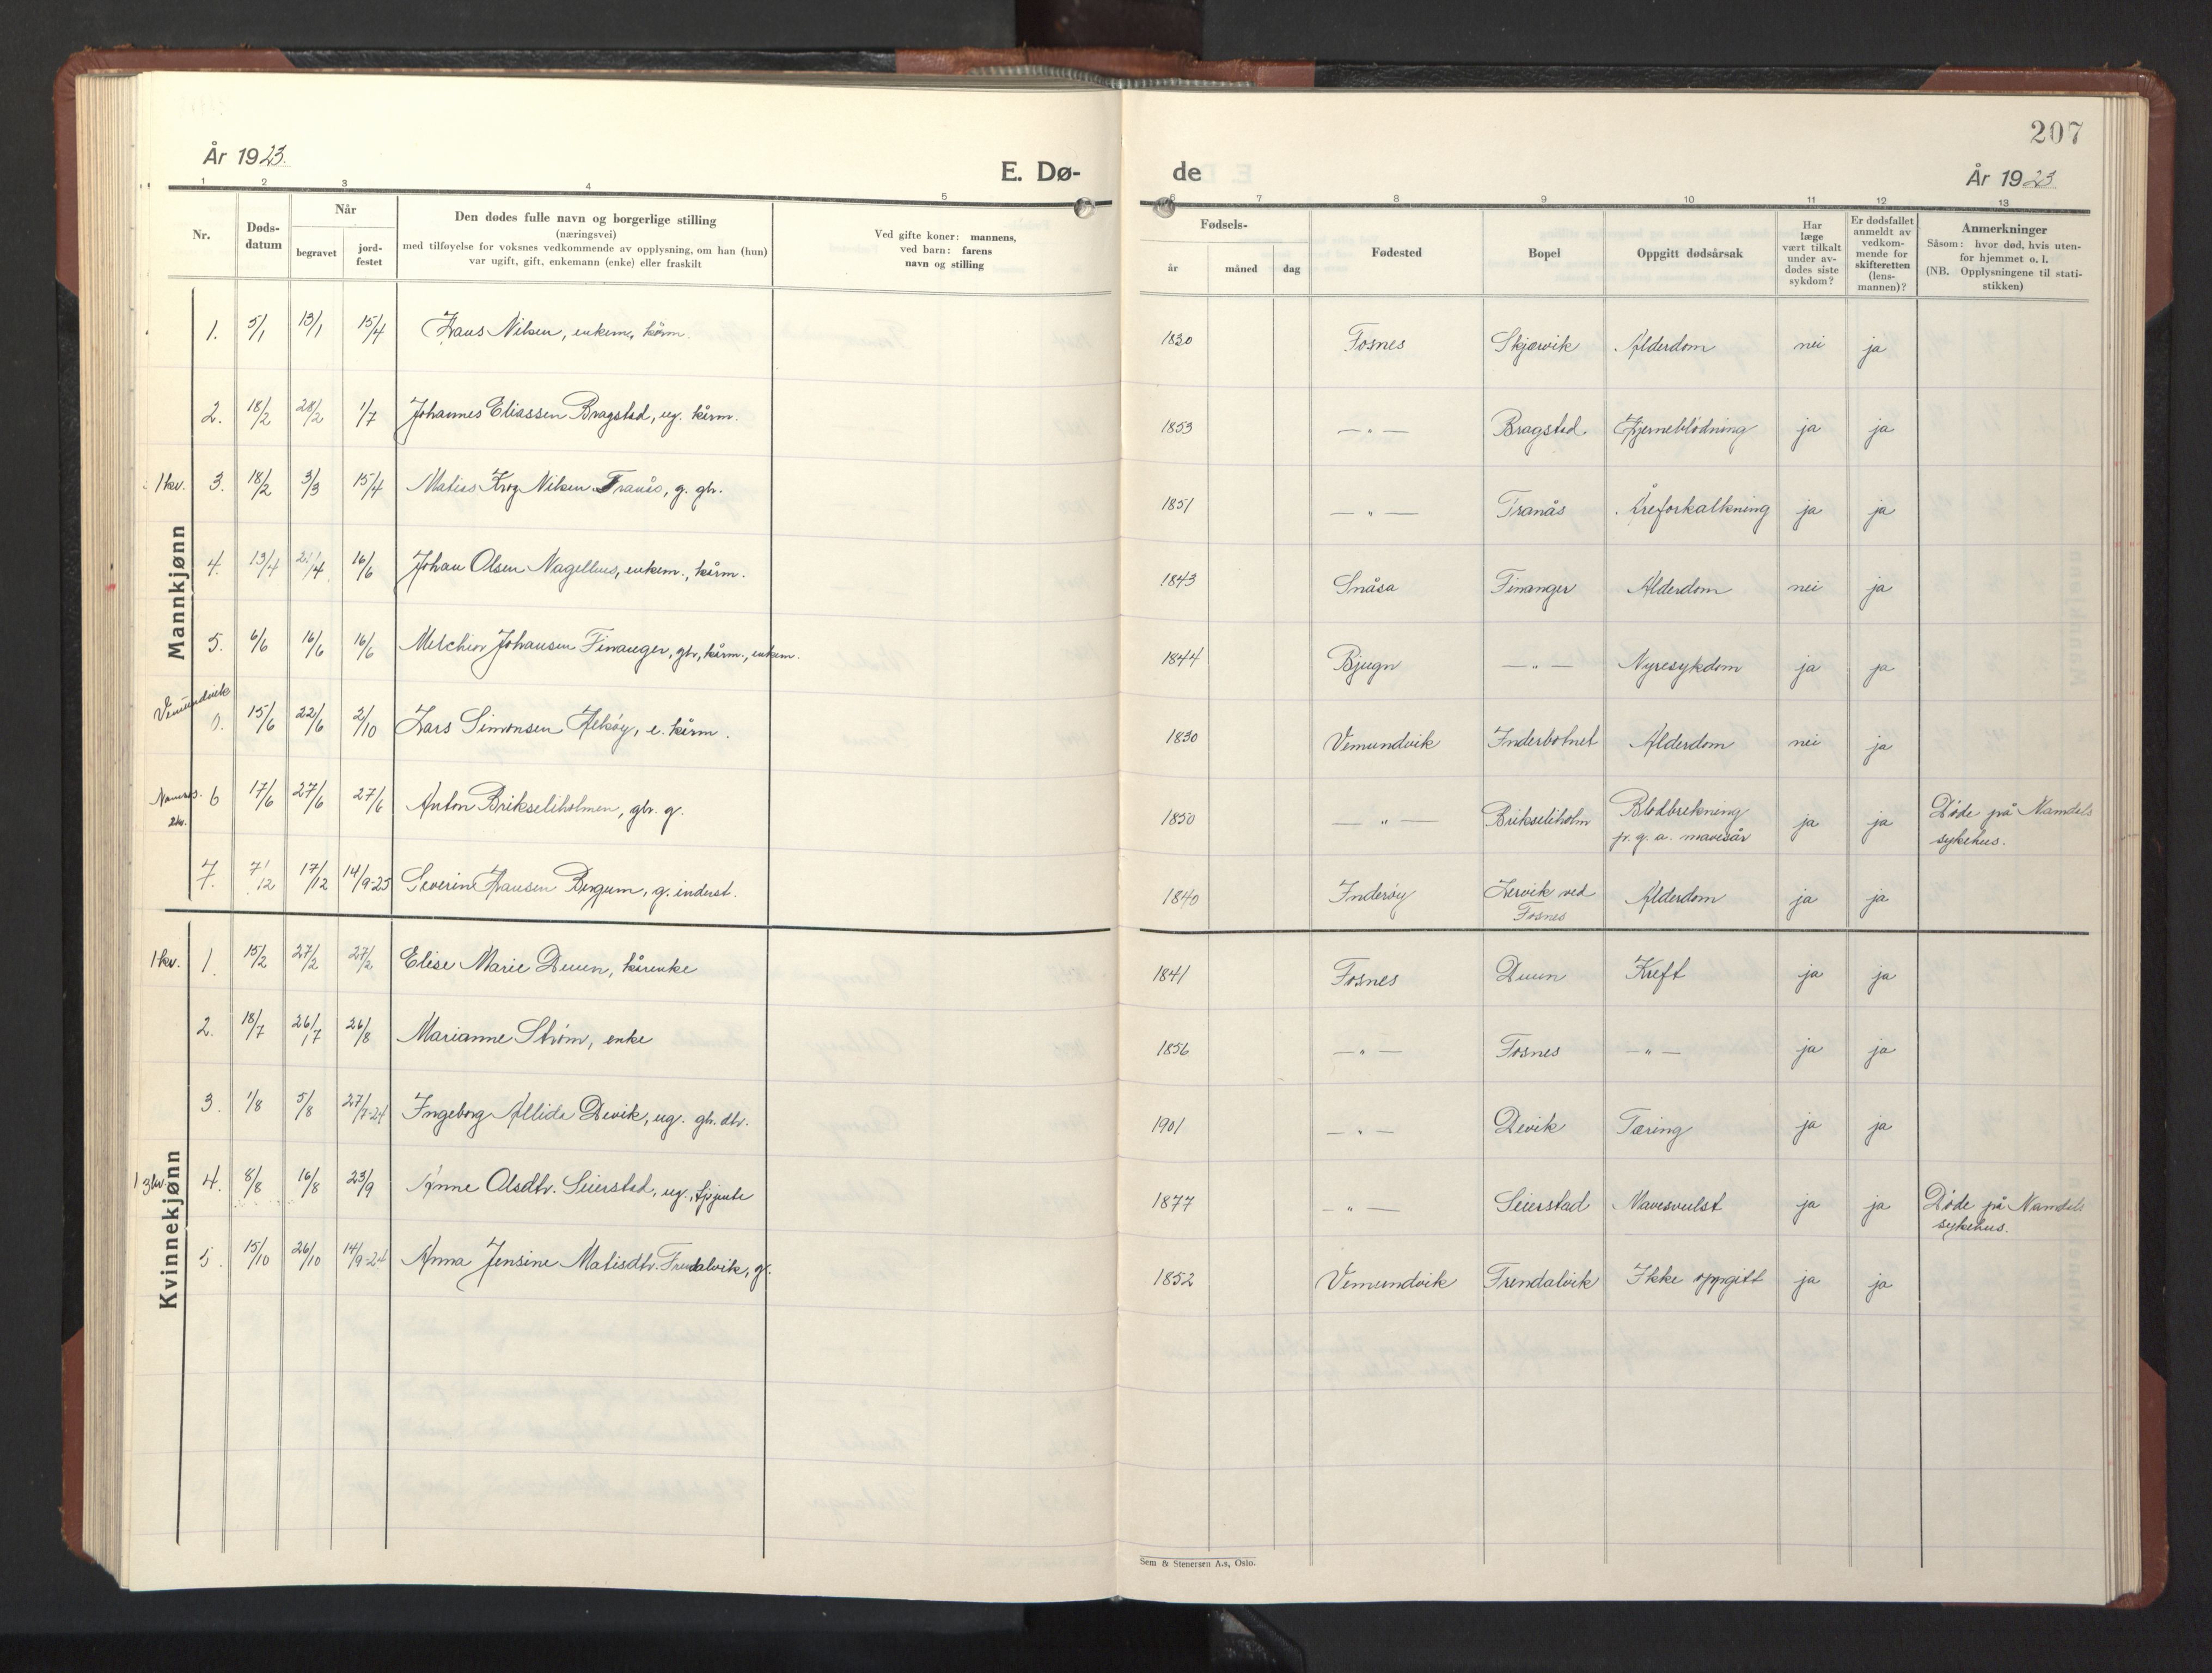 207
År 1923.
E. Dø-
de
År 1923
1 2 3 4 5 6 7 8 9 10 11 12 13
Nr.
Døds-
datum
Når
begravet
jord-
festet
Den dødes fulle navn og borgerlige stilling
(næringsvei)
med tilføyelse for voksnes vedkommende av opplysning, om han (hun)
var ugift, gift, enkemann (enke) eller fraskilt
Ved gifte koner: mannens,
ved barn: farens
navn og stilling
Fødsels-
år måned dag
Fødested
Bopel
Oppgitt dødsårsak
Har
læge
vært tilkalt
under av-
dødes siste
sykdom?
Er dødsfallet
anmeldt av
vedkom-
mende for
skifteretten
(lens-
mannen)?
Anmerkninger
Såsom: hvor død, hvis uten-
for hjemmet o. l.
(NB. Opplysningene til stati-
stikken)
Mannkjønn
1. 5/1 13/1 15/4 Hans Nilsen, enkem, kårm. 1830 Fosnes Skjærvik Alderdom nei ja
2. 18/2 28/2 1/7 Johannes Eliassen Bragstad, ug. kårm. 1853 — " — Bragstad. Hjerneblødning ja ja
1 kv. 3. 18/2 3/3 15/4 Matias Krog Nilsen Tranås, g. gbr. 1851 — " — Tranås Åreforkalkning ja ja
4. 13/4 21/4 16/6 Johan Olsen Nagelhus, enkem., kårm. 1843 Snåsa Finanger Alderdom nei ja
5. 6/6 16/6 16/6 Melchior Johansen Finanger, gbr, kårm., enkem. 1844 Bjugn — " — Nyresykdom ja ja
Vemundvik
15/6 22/6 2/10 Lars Simonsen Alhøy, e. kårm. 1830 Vemundvik Inderbotnet Alderdom nei ja
Namsos. 6 17/6 27/6 27/6 Anton Brikseliholmen, gbr. g. 1850 — " — Brikseliholm Blodbrekning ja ja Døde på Namdals
2 kv. p. g. a. mavesår sykehus.
7. 7/12 17/12 14/9-25 Severin Hansen Bergum, g. inderst. 1840 Inderøy Lervik ved Alderdom ja ja
Fosnes
Kvinnekjønn
1 kv. 1. 15/2 27/2 27/2 Elise Marie Duun, kårenke 1841 Fosnes Duun Kreft ja ja
2. 18/7 26/7 26/8 Marianne Strøm, enke 1856 — " — Fosnes — " — ja ja
3. 1/8 5/8 27/7-24 Ingeborg Allida Devik, ug. gb. dtr. 1901 — " — Devik Tæring ja ja
1 3 kv. 4. 8/8 16/8 23/9 Anne Olsdtr. Seierstad, ug., tjɔ̈jente 1877 — " — Seierstad Mavesvulst ja ja Døde på Namdals
sykehus.
5. 15/10 26/10 14/9-24 Anna Jensine Matisdtr. Frendalvik, g. 1852 Vemundvik Frendalvik Ikke oppgitt ja ja
Sem & Stenersen A.s, Oslo.